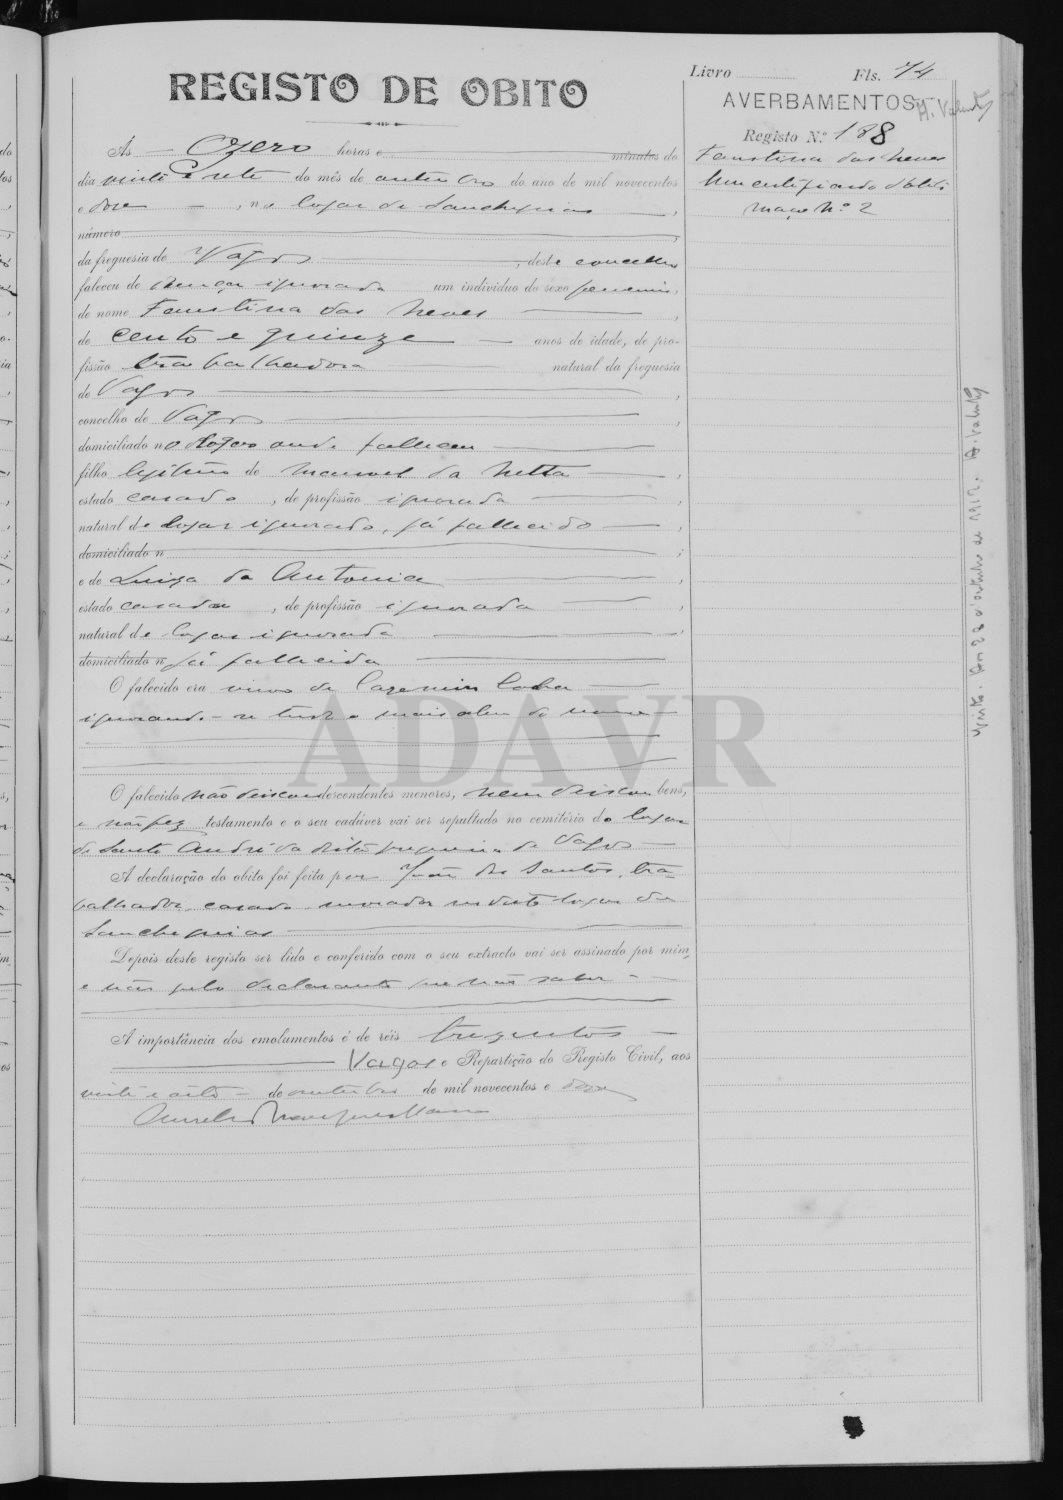 Livro Fls. 74
REGISTO DE OBITO
AVERBAMENTOS
Registo N.º 188
Faustina das Neves
Um certificado d'obito
Maço Nº 2
Ás Ozero horas e minutos do
dia vinte e sete do mês de outubro do ano de mil novecentos
e doze, no logar de Sanchequias,
número
da freguesia de Vagos, deste concelho
faleceu de doença ignorada um individuo do sexo femenino,
de nome Faustina das Neves,
de cento e quinze anos de idade, de pro-
fissão trabalhadora natural da freguesia
de Vagos,
concelho de Vagos,
domiciliado no logar onde falleceu
filho legitimo de Manoel da Netta,
estado casado, de profissão ignorada
natural de logar ignorado, já fallecido;
domiciliado n;
e de Luiza da Antonia,
estado casada, de profissão ignorada,
natural de logar ignorado,
domiciliado n já fallecida
O falecido era viuva de
ignorando-se tudo o mais alem do nome
ADAVR
O falecido não deixou descendentes menores, nem deixou bens,
e não fez testamento e o seu cadáver vai ser sepultado no cemitério do logar
de Santo André da dita freguesia de Vagos
A declaração do obito foi feita por João dos Santos, tra-
balhador, casado morador neste logar de
Sanchequias
Depois deste registo ser lido e conferido com o seu extracto vai ser assinado por mim,
e não pelo declarante por não saber
A importância dos emolumentos é de réis trezentos
Vagos e Repartição do Registo Civil, aos
vinte e oito de outubro de mil novecentos e doze
Visto. Em 28 d'outubro de 1912. A. Valente
A. Valente